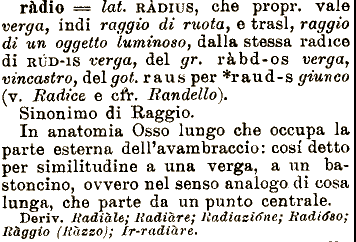 ràdio = lat. RÀDIUS, che propr. vale
verga, indi raggio di ruota, e trasl, raggio
di un oggetto luminoso, dalla stessa radice
di RŬD-IS verga, del gr. ràbd-os verga,
vincastro, del got. raus per *raud-s giunco
(v. Radice e cfr. Randello).
Sinonimo di Raggio.
In anatomia Osso lungo che occupa la
parte esterna dell'avambraccio: cosí detto
per similitudine a una verga, a un ba-
stoncino, ovvero nel senso analogo di cosa
lunga, che parte da un punto centrale.
Deriv. Radiàle; Radiàre; Radiazióne; Radióso;
Ràggio (Ràzzo); Ir-radiàre.